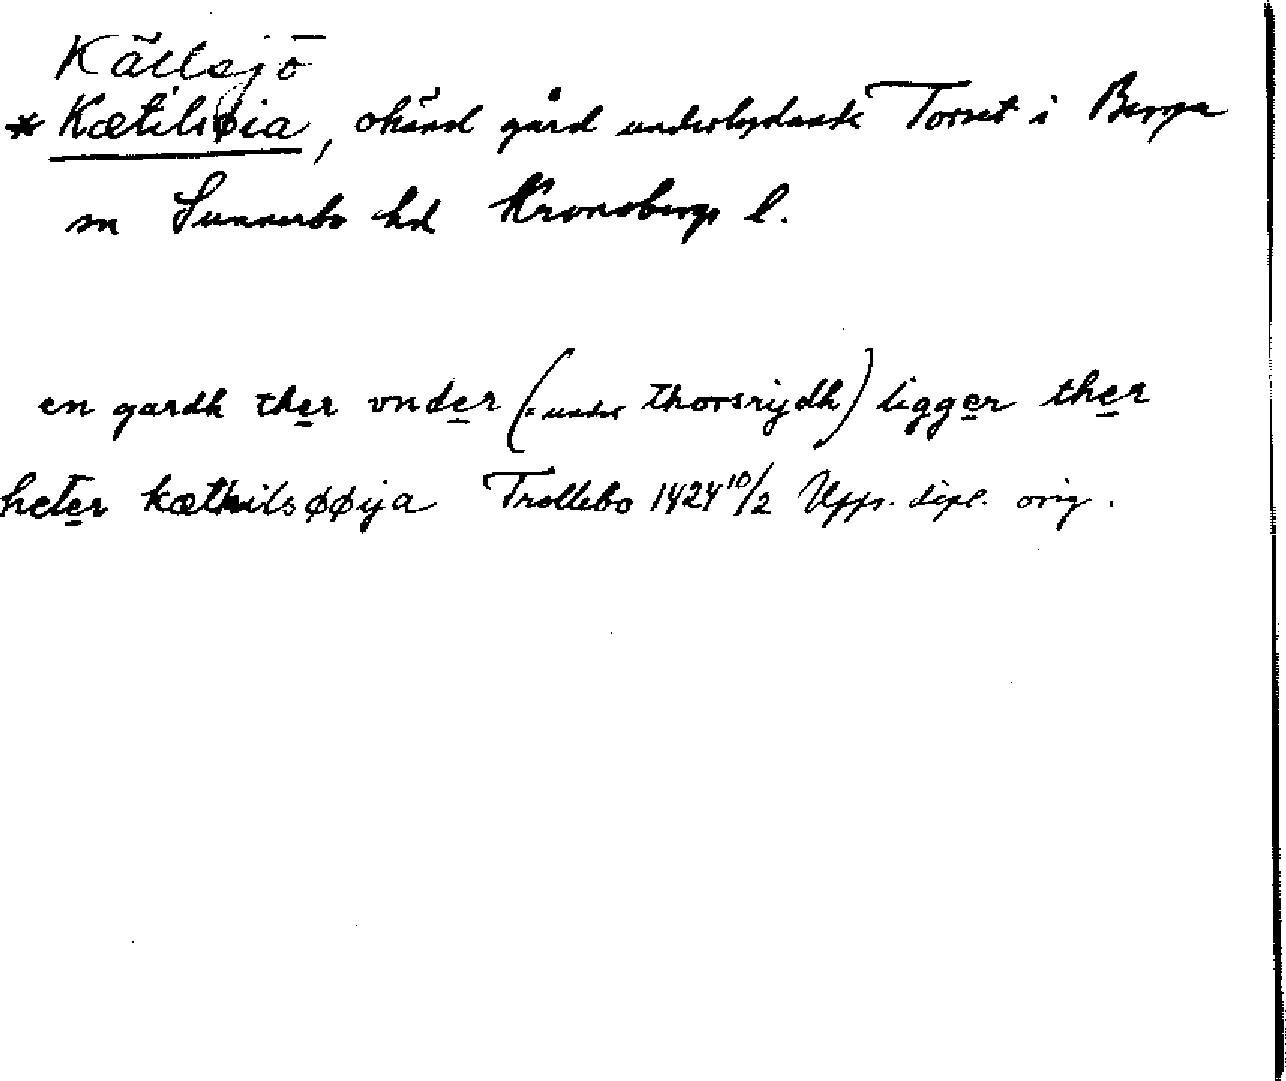 Källsjö
* Kætilsøia, okänd gård underlydande Torset i Berga
sn Sunnerbo hd Kronobergs l.
en gardh ther vnder (= under thorsrydh) ligger ther
heter kæthilsøøija Trollebo 1424 10/2 Upps. dipl. orig.